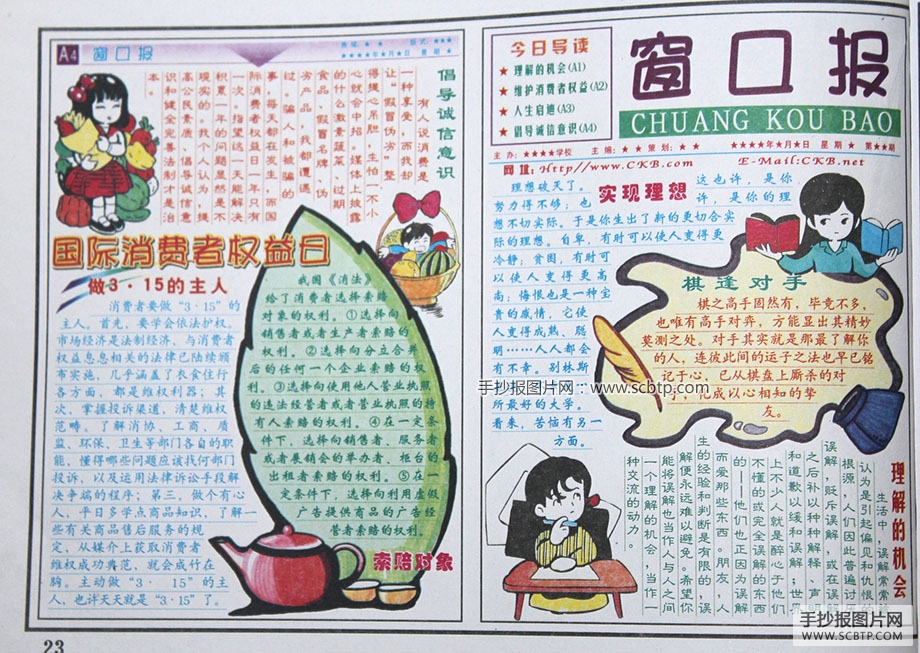 A4 窗口报
倡导诚信意识
有人说消费是
一种享受，而我却
让“假冒伪劣”整
得提心吊胆，生怕一不小
心就会中招。媒体上披露
的什么激素蔬菜、过期
食品、假冒名牌、伪
劣产品，我都遭遇
过。骗人和被骗的
事，每天都在发生，而国
际消费者权益日一年只有
一次。指望这一天能解决
积累一年的问题显然是不
现实的。我个人认为，提
高公民素质，倡导诚信意
识和健全完善法制才是治
本。
国际消费者权益日
做3·15的主人
消费者要做“3·15”的
主人。首先，要学会依法护权。
市场经济是法制经济，与消费者
权益息息相关的法律已陆续颁
布实施，几乎涵盖了衣食住行
各方面，都是维权利器；其
次，掌握投诉渠道，清楚维权
范畴。了解消协、工商、质
监、环保、卫生等部门各自的职
能，懂得哪些问题应该找何部门
投诉，以及运用法律诉讼手段解
决争端的程序；第三，做个有心
人，平日多学点商品知识，了解一
些有关商品售后服务的规
定，从媒介上获取消费者
维权成功典范，就会成竹在
胸，主动做“3·15”的主
人，也许天天就是“3·15”了。
我国《消法》
给了消费者选择索赔
对象的权利。①选择向
销售者或者生产者索赔的
权利。②选择向分立合并
后的任何一个企业索赔的权
利。③选择向使用他人营业执照
的违法经营者或者营业执照的持
有人索赔的权利。④在一定条
件下，选择向销售者、服务者
或者展销会的举办者、柜台的
出租者索赔的权利。⑤在一
定条件下，选择向利用虚假
广告提供商品的广告经
营者索赔的权利。
索赔对象
23
今日导读
★ 理解的机会(A1)
★ 维护消费者权益(A2)
★ 人生启迪(A3)
★ 倡导诚信意识(A4)
窗口报
CHUANG KOU BAO
主办：★★★★学校 主编：★★ 策划：★★ ★★★★年★月★日 星期★ 第★★期
网址：Http//www.CKB.com E-Mail:CKB.net
实现理想
理想破灭了。 这也许，是你
努力得不够；也 许，是你的理
想不切实际。于是你生出了新的更切合实
际的理想。自卑，有时可以使人变得更
冷静；贫困，有时可
以使人变得更高
尚；悔恨也是一种宝
贵的感情，它使
人变得成熟、聪
明……人人都会
有不幸。别林斯
所最好的大学。
看来，苦恼有另一
方面。
棋逢对手
棋之高手固然有，毕竟不多，
也唯有高手对弈，方能显出其精妙
莫测之处。对手其实就是那最了解你
的人，连彼此间的运子之法也早已铭
记于心，已从棋盘上厮杀的对
手，化成以心相知的挚
友。
手抄报图片网：www.scbtp.com
理解的机会
生活中，误解常常
认为是引起偏见和仇恨的
根源，人们因此普遍讨厌
误解，贬斥误解，或在误解
之后补以种种解释、声明
和道歉以缓和误解。世界
上不少人就是醉心于他们
不懂的或完全误解的东西
的——他们也正因为误解
而爱那些东西。朋友，人
生的经验和判断是有限的，误
解便永远难以避免。希望你
能将误解也当作人与人之间
一个理解的机会，当作一
种交流的动力。
手抄报图片网
WWW.SCBTP.COM